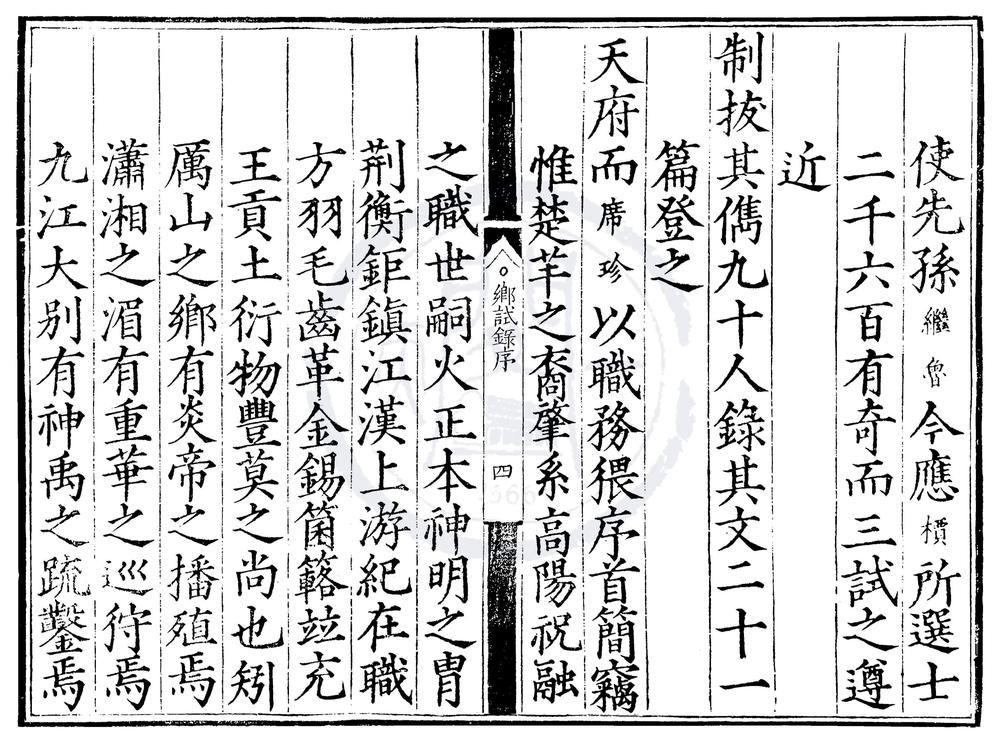 使先孫繼魯今應檟所選士
二千六百有奇而三試之遵
近
制拔其儁九十人錄其文二十一
篇登之
天府而席珍以職務猥序首簡竊
惟楚芊之裔肇系高陽祝融
鄉試錄序
四
之職世嗣火正本神明之胄
荆衡鉅鎮江漢上游紀在職
方羽毛齒革金錫箘簵竝充
王貢土衍物豐莫之尚也矧
厲山之鄉有炎帝之播殖焉
瀟湘之湄有重華之巡狩焉
九江大別有神禹之疏鑿焉